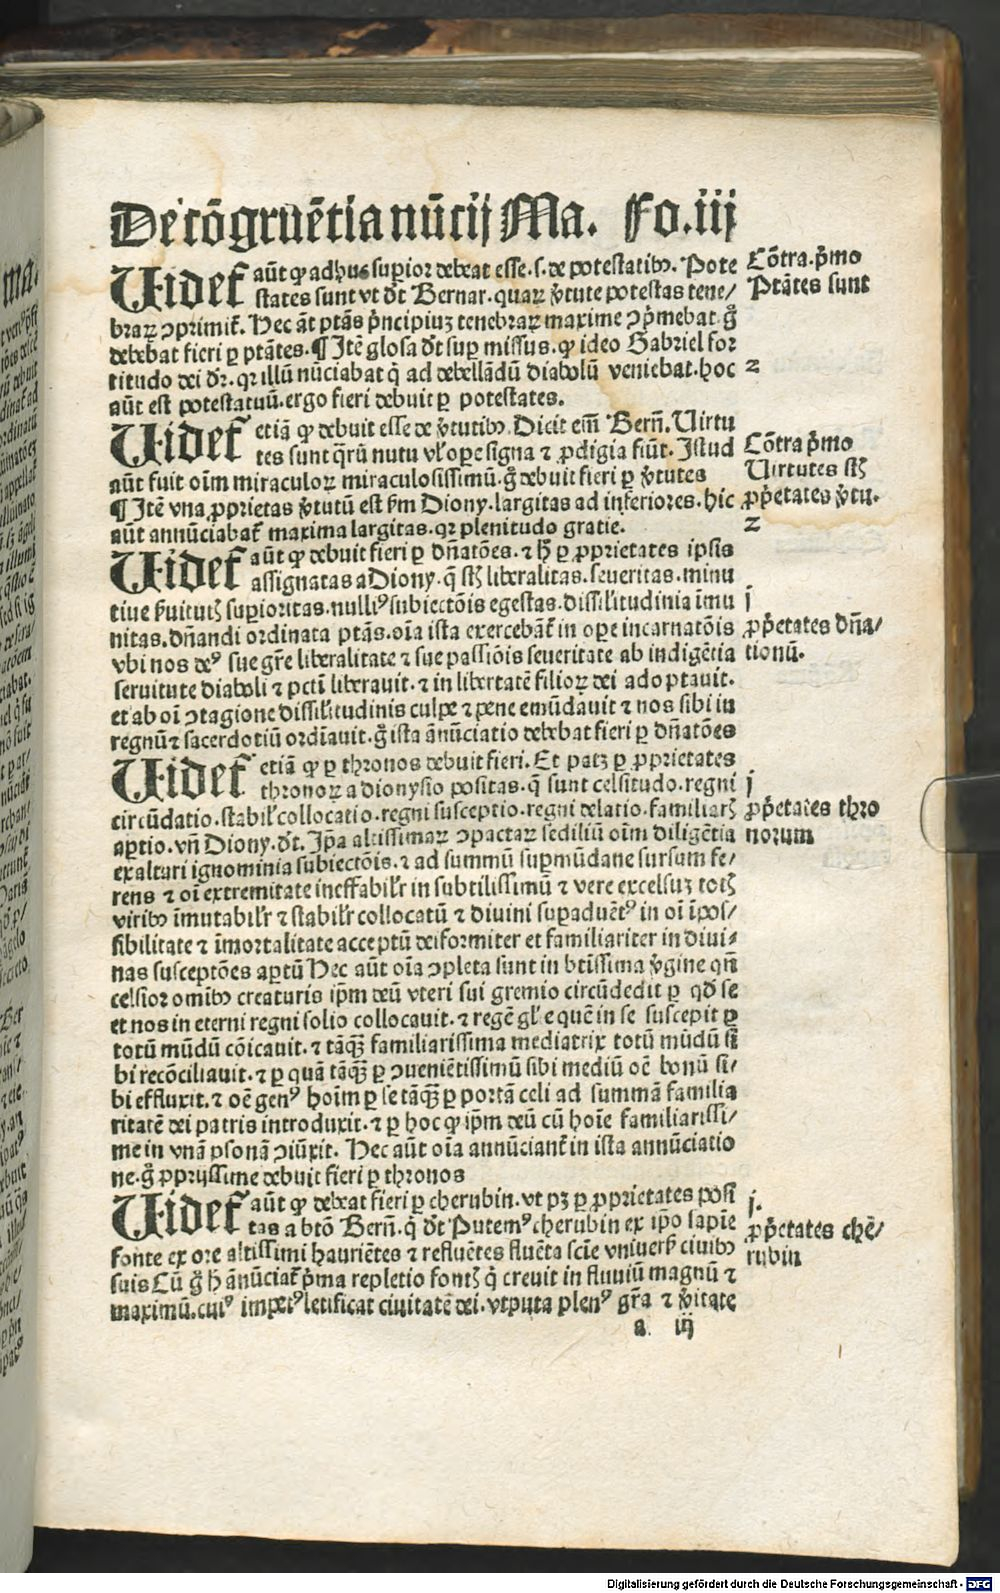 De cōgruētia nūcij Ma. Fo.iij
Uidet᷑ aūt ꝙ adhuc supior debeat esse.s.de potestatibꝰ. Pote
states sunt vt dt̄ Bernar.quaꝝ v̓tute potestas tene/
braꝝ ꝯprimit᷑. Hec āt ptās p̓ncipiuꝫ tenebraꝝ maxime ꝯp̓mebat.g̊
debebat fieri ꝑ ptātes.¶ Itē glosa dt̄ sup missus.ꝙ ideo Gabriel for
titudo dei dr̄.qꝛ illū nūciabat q̇ ad debellādū diabolū veniebat.hoc
aūt est potestatuū.ergo fieri debuit ꝑ potestates.
Uidet᷑ etiā ꝙ debuit esse de v̓tutibꝰ. Dicit em̄ Bern̄. Uirtu
tes sunt qͣrū nutu vl̓ ope signa ⁊ ꝓdigia fiūt. Istud
aūt fuit oīm miraculoꝝ miraculosissimū.g̊ debuit fieri ꝑ v̓tutes
¶ Itē vna ꝓprietas v̓tutū est ẜm Diony.largitas ad inferiores.hic
aūt annūciabat᷑ maxima largitas.qꝛ plenitudo gratie.
Uidet᷑ aūt ꝙ debuit fieri ꝑ dn̄atōes.⁊ h̓ ꝑ ꝓprietates ipsis
assignatas a Diony.q̄ sꝫ liberalitas.seueritas.minu
tiue ẜuitutꝭ supioritas.nulliꝰ subiectōis egestas.dissil̓itudinia īmu
nitas.dn̄andi ordinata ptās.oīa ista exercebāt᷑ in ope incarnatōis
vbi nos deꝰ sue gr̄e liberalitate ⁊ sue passiōis seueritate ab indigētia
seruitute diaboli ⁊ pctī liberauit.⁊ in libertatē filioꝝ dei adoptauit.
et ab oī ꝯtagione dissil̓itudinis culpe ⁊ pene emūdauit ⁊ nos sibi in
regnū ⁊ sacerdotiū ordīauit.g̊ ista ānūciatio debebat fieri ꝑ dn̄atōes
Uidet᷑ etiā ꝙ ꝑ thronos debuit fieri. Et patꝫ ꝑ ꝓprietates
thronoꝝ a dionysio positas.q̄ sunt celsitudo.regni
circūdatio.stabil̓ collocatio.regni susceptio.regni delatio.familiarꝭ
aptio.vn̄ Diony.dt̄. Ip̄a altissimaꝝ ꝯpactaꝝ sediliū oīm diligētia
exaltari ignominia subiectōis.⁊ ad summū supmūdane sursum fe/
rens ⁊ oī extremitate ineffabil̓r in subtilissimū ⁊ vere excelsuꝫ totꝭ
viribꝰ īmutabil̓r ⁊ stabil̓r collocatū ⁊ diuini supaduētꝰ in oī īpos/
sibilitate ⁊ īmortalitate acceptū deiformiter et familiariter in diui/
nas susceptōes aptū Hec aūt oīa ꝯpleta sunt in btīssima v̓gine qn̄
celsior omībꝰ creaturis ip̄m deū vteri sui gremio circūdedit ꝑ qd̄ se
et nos in eterni regni solio collocauit.⁊ regē gl̓e quē in se suscepit ꝑ
totū mūdū cōicauit.⁊ tāqꝫ familiarissima mediatrix totū mūdū si
bi recōciliauit.⁊ ꝑ quā tāqꝫ ꝑ ꝯueniētissimū sibi mediū oē bonū si/
bi effluxit.⁊ oē genꝰ hoīm ꝑ se tāqꝫ ꝑ portā celi ad summā familia
ritatē dei patris introduxit.⁊ ꝑ hoc ꝙ ip̄m deū cū hoīe familiarissi/
me in vnā psonā ꝯiūxit. Hec aūt oīa annūciant᷑ in ista annūciatio
ne.g̊ ꝓprijssime debuit fieri ꝑ thronos
Uidet᷑ aūt ꝙ debeat fieri ꝑ cherubin.vt pꝫ ꝑ ꝓprietates posi
tas a btō Bern̄.q̇ dt̄ Putemꝰ cherubin ex ip̄o sapīe
fonte ex ore altissimi hauriētes ⁊ refluētes fluēta scīe vniuers̓ ciuibꝰ
suis Cū g̊ h̓ ānūciat᷑ p̓ma repletio fontꝭ q̇ creuit in fluuiū magnū ⁊
maximū.cuiꝰ impetꝰ letificat ciuitatē dei.vtputa plenꝰ gr̄a ⁊ v̓itate
a iij
Cōtra.p̓mo
Ptātes sunt
2
Cōtra p̓mo
Uirtutes sꝫ
ꝓp̓etates v̓tu.
2
j
ꝓp̓etates dn̄a/
tionū.
j
ꝓp̓etates thro
norum
j.
ꝓp̓etates chē/
rubin
Digitalisierung gefördert durch die Deutsche Forschungsgemeinschaft - DFG